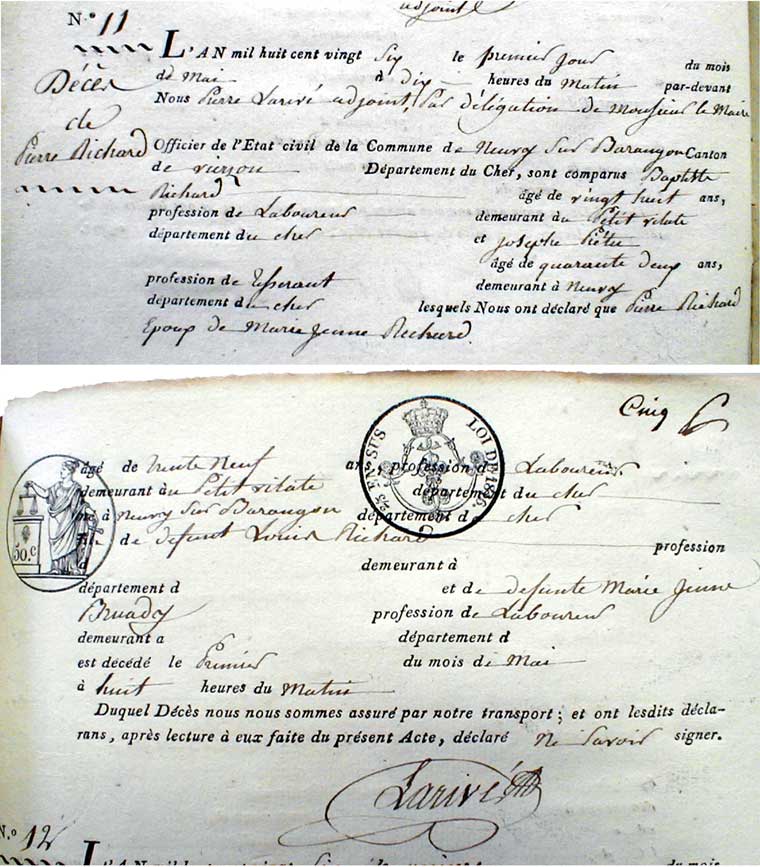 adjoint
N.º 11
L'AN mil huit cent vingt Six le premier jour du mois
de Mai à dix heures du Matin par-devant
Nous Pierre Larivé adjoint, par délégation de Monsieur le Maire
Décès
de
Pierre Richard
Officier de l'Etat civil de la Commune de Neuvy Sur Barangon Canton
de vierzon Département du Cher, sont comparus Baptiste
Richard âgé de vingt huit ans,
profession de Laboureur demeurant au Petit vilate
département du cher et josephe
âgé de quarante deux ans,
profession de Tisserant demeurant à Neuvy
département du cher lesquels Nous ont déclaré que Pierre Richard
Epoux de Marie Jeanne Richard.
Cinq
25 P. % EN SUS LOI DE 1816.
50.c
âgé de trente Neuf ans, profession de Laboureur
demeurant au Petit vilate département du cher
né à Neuvy Sur Barangon département du cher
fils de defunt Louis Richard profession
d demeurant à
département d et de defunte Marie Jeune
profession de Laboureur
demeurant a département d
est décédé le Premier du mois de Mai
à huit heures du Matin
Duquel Décès nous nous sommes assuré par notre transport; et ont lesdits décla-
rans, après lecture à eux faite du présent Acte, déclaré ne Savoir signer.
Larivé
N.º 12
L'AN mil